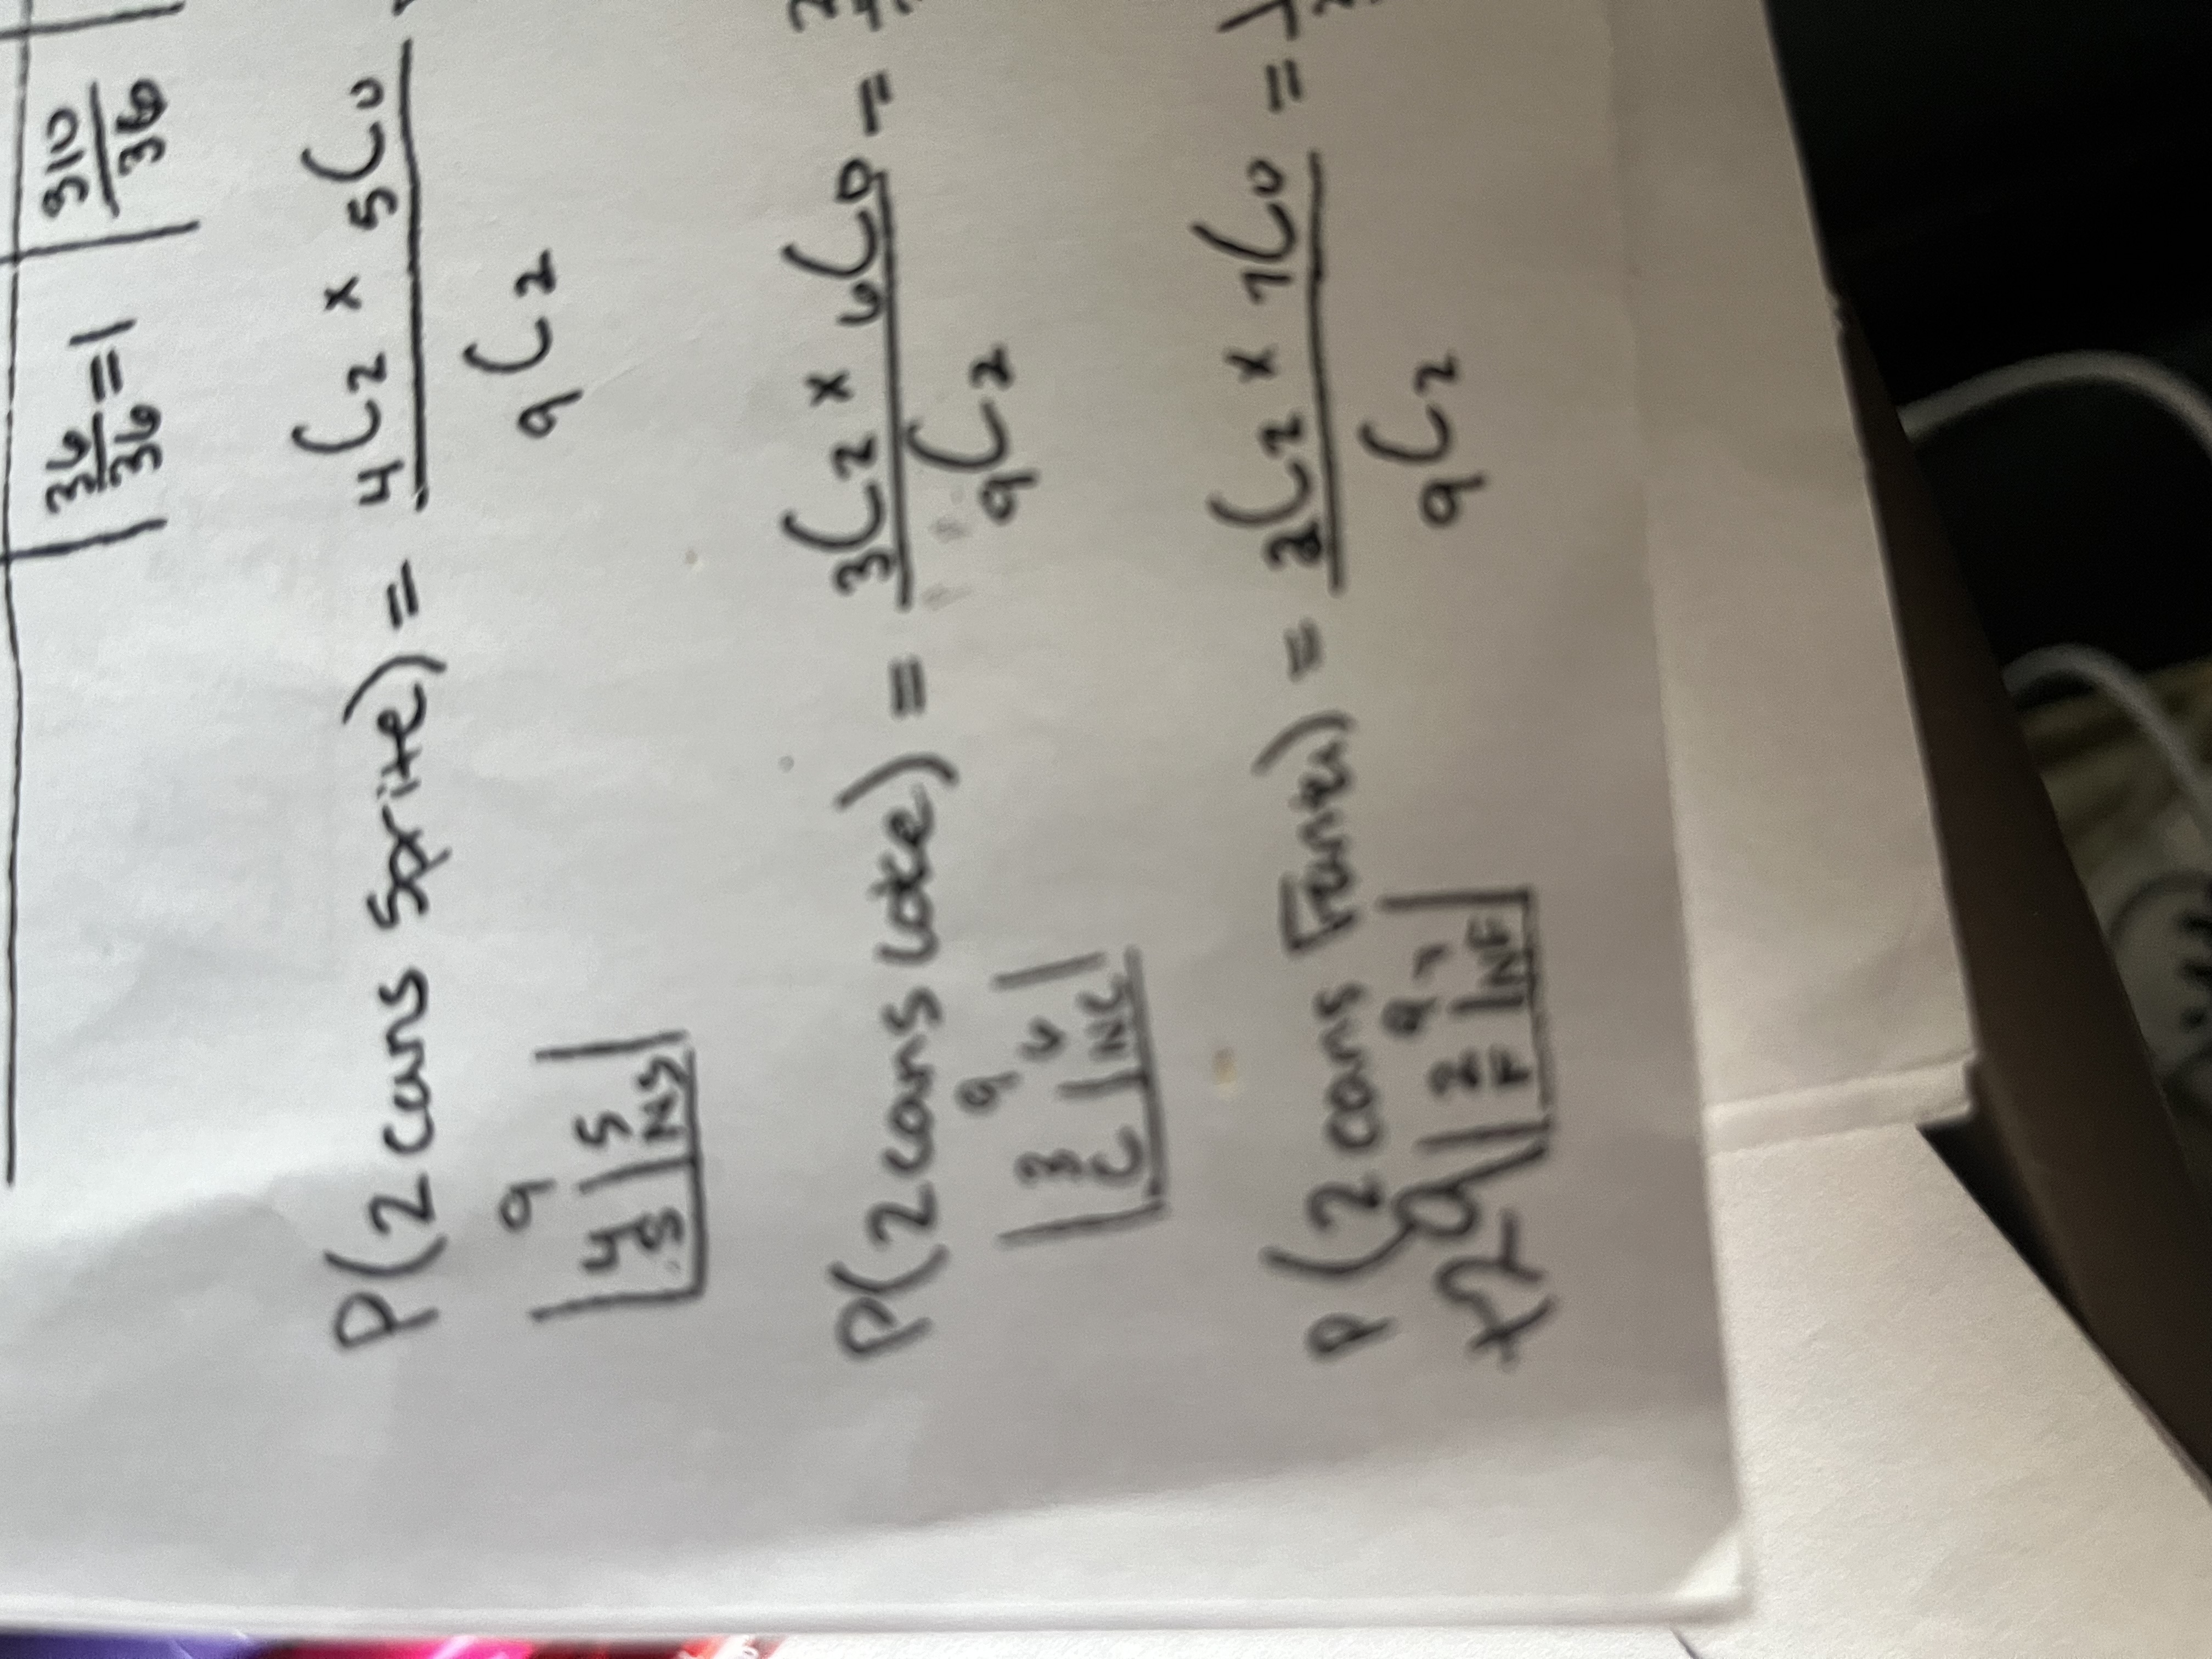 36/36 = 1 | 310/36
P(2 cans Sprite) = 4C2 x 5C0 / 9C2
9
4 | 5
S | NS
P(2 cans Coke) = 3C2 x 6C0 / 9C2 =
9
3 | 6
C | NC
P(2 cans Fanta) = 2C2 x 7C0 / 9C2 =
9
2 | 7
F | NF